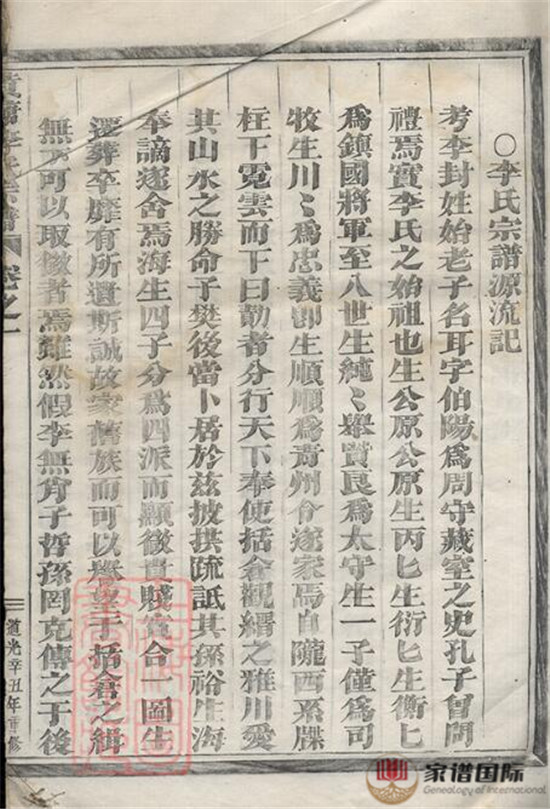 ○李氏宗譜源流記
考李封姓始老子名耳字伯陽爲周守藏室之史孔子曾問
禮焉實李氏之始祖也生公原公原生丙匕生衍匕生衡匕
爲鎮國將軍至八世生純〻舉賢良爲太守生一子僅爲司
牧生川〻爲忠義郎生順順爲青州令遂家焉自隴西系牒
柱下冕雲而下曰勛者分行天下奉使括倉觀縉之雅川愛
其山水之勝命子樊後當卜居於兹披拱疏誠其孫裕生海
奉謫逐舍焉海生四子分爲四派而顯徵貴賤寔合一圖生
塟卒靡有所遺斯誠故家舊族而可以 望于括倉之縉
無不可以取徵者焉雖然假李無肖子哲孫罔克傳之于後
李氏宗譜
卷之一
道光辛丑年重修
家谱国际
Genealogy of International